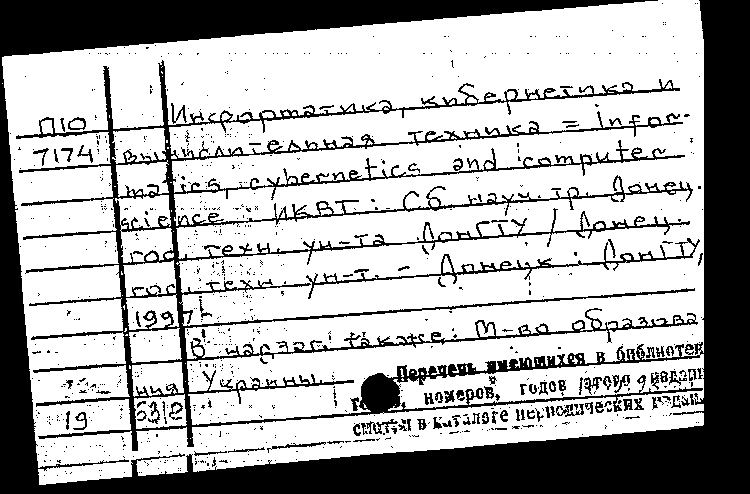 Информатика, кибернетика и
П10
7174 вычислительная техника = Infor-
matics, cybernetics and computer
science : ИКВТ : Сб. науч. тр. Донец.
гос. техн. ун-та ДонГТУ / Донец.
гос. техн. ун-т. - Донецк : ДонГТУ,
1997-
В надзаг. также: М-во образова-
ния Украины
Перечень имеющихся в библиотек
номеров, годов этого издани
смотри в каталоге периодических издан.
19 5312